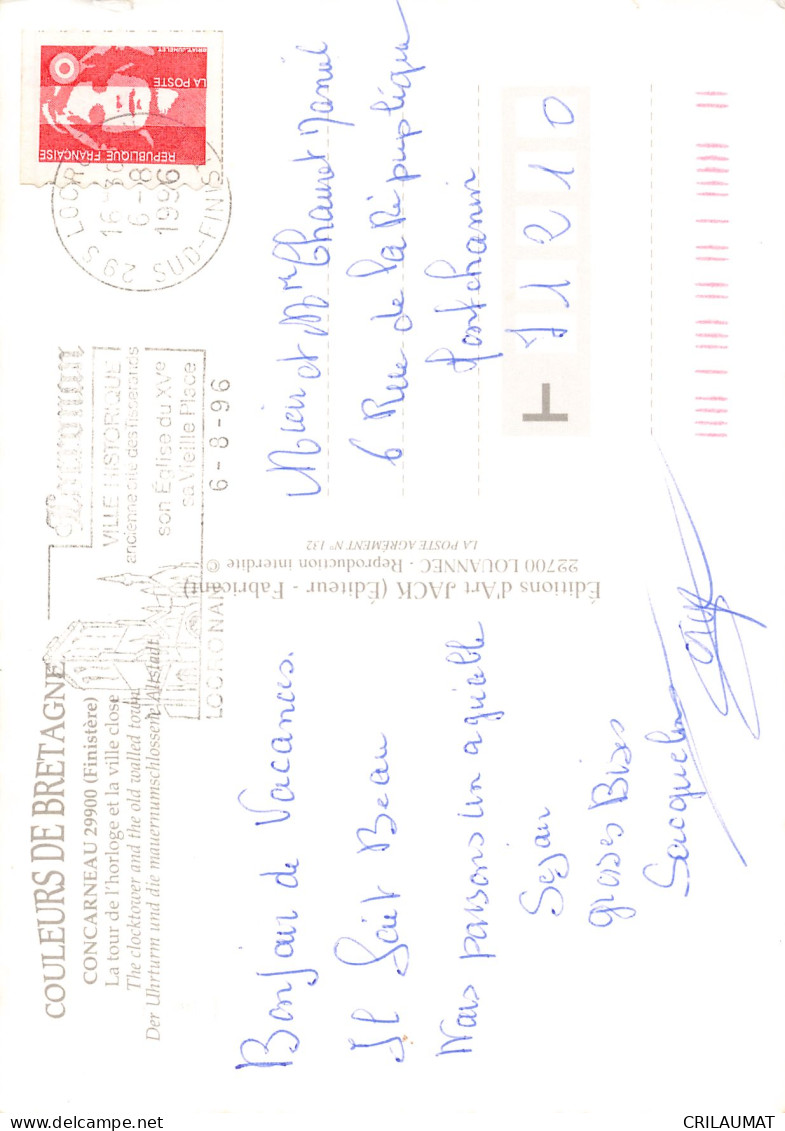 COULEURS DE BRETAGNE
CONCARNEAU 29900 (Finistère)
La tour de l'horloge et la ville close
The clocktower and the old walled town
Der Uhrturm und die mauernumschlossene Altstadt
Bonjour de Vacances.
Il fait Beau
Nous passons un agréable
Sejour
groses Bises
Jacqueline
Éditions d'Art JACK (Éditeur - Fabricant)
22700 LOUANNEC - Reproduction interdite ©
LA POSTE AGRÉMENT N° 132
Locronan
VILLE HISTORIQUE
ancienne cité des tisserands
son Église du XVe
sa Vieille Place
LOCRONAN
6-8-96
29 S LOCR
16-30
6-8
1996
SUD-FINIS
BRIAT-JUMELET
LA POSTE
REPUBLIQUE FRANÇAISE
et Mr Chauvet
6 Rue de la République
Montchanin
71210
T
CRILAUMAT